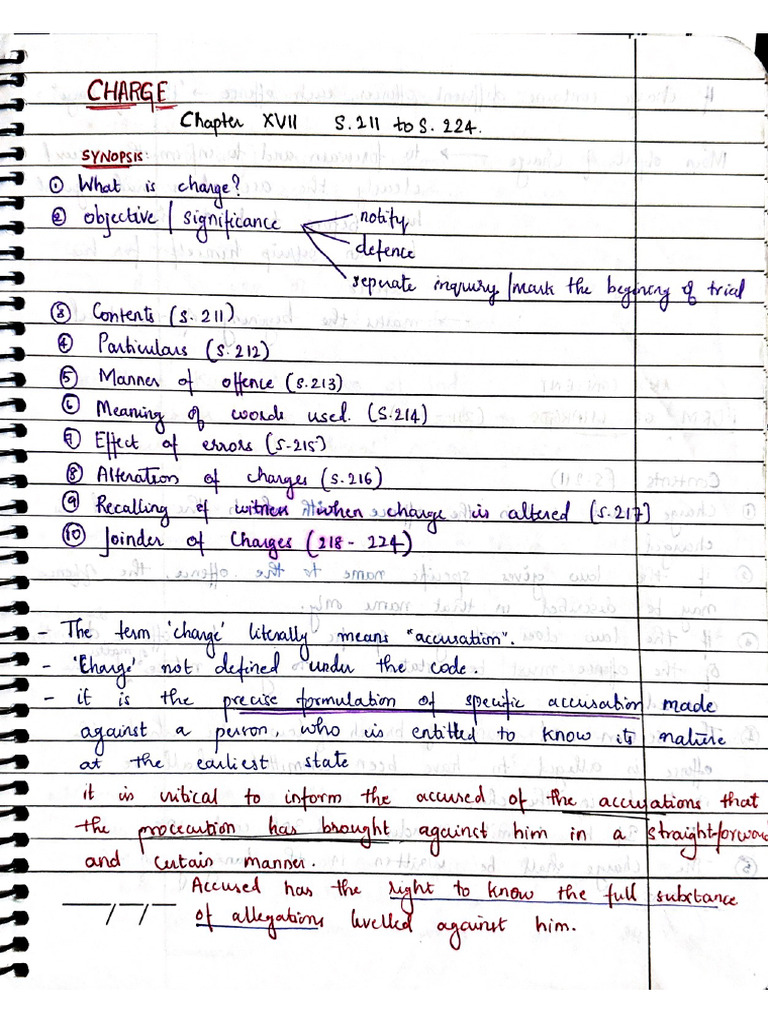 CHARGE
Chapter XVII S.211 to S.224.
SYNOPSIS
① What is charge?
② objective / significance notify
defence
seperate inquiry / mark the begining of trial
③ Contents (S.211)
④ Particulars (S.212)
⑤ Manner of offence (S.213)
⑥ Meaning of words used. (S.214)
⑦ Effect of errors (S-215)
⑧ Alteration of charges (S.216)
⑨ Recalling of witness when charge is altered (S.217)
⑩ Joinder of Charges (218 - 224)
- The term 'charge' literally means "accusation".
- 'Charge' not defined under the code.
- it is the precise formulation of specific accusation made
against a person, who is entitled to know its nature
at the earliest state
it is critical to inform the accused of the accusations that
the procecution has brought against him in a straightforward
and curtain manner.
Accused has the right to know the full substance
of allegations levelled against him.